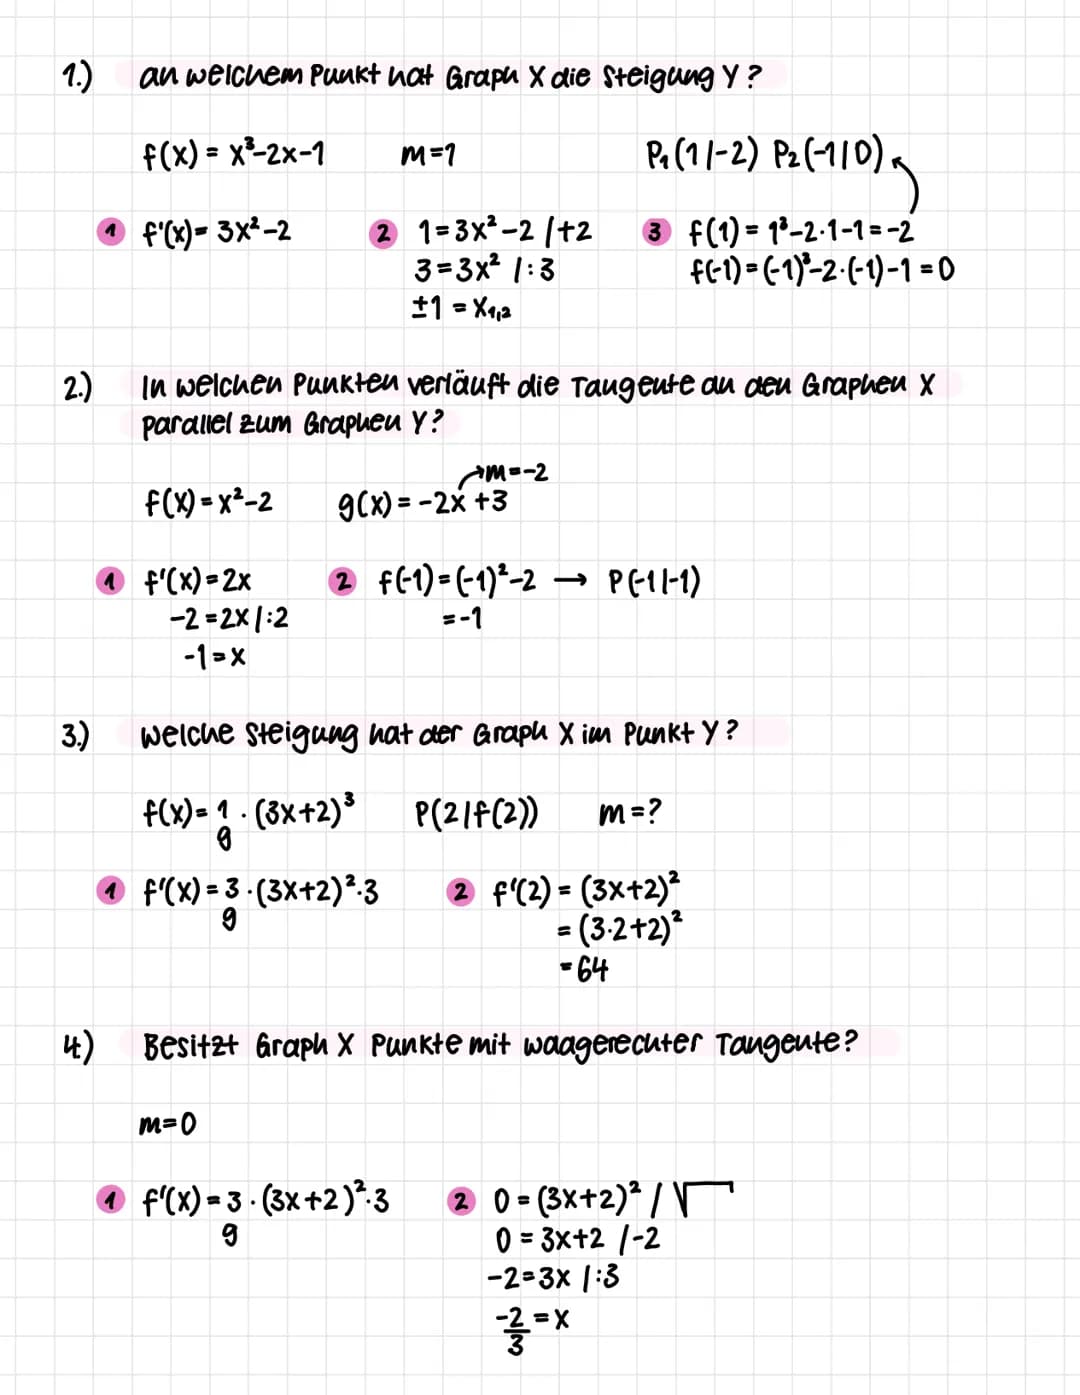 1.) an welchem Punkt hat Graph X die Steigung Y?
f(x) = x³-2x-1 m=1 P₁(1/-2) P₂(-1/0)
1 f'(x)= 3x²-2 2 1=3x²-2 /+2 3 f(1) = 1³-2·1-1=-2
3=3x² /:3 f(-1)=(-1)³-2·(-1)-1=0
±1 = x₁,₂
2.) In welchen Punkten verläuft die Tangente an den Graphen X
parallel zum Graphen Y?
→m=-2
f(x)=x²-2 g(x) = -2x +3
1 f'(x)=2x 2 f(-1)=(-1)²-2 → P(-1/-1)
-2=2x/:2 =-1
-1=x
3.) welche Steigung hat der Graph X im Punkt Y?
f(x)= 1 · (3x+2)³ P(2/f(2)) m=?
9
1 f'(x) = 3 ·(3x+2)²·3 2 f'(2) = (3x+2)²
9 = (3·2+2)²
=64
4.) Besitzt Graph X Punkte mit waagerechter Tangente?
m=0
1 f'(x) = 3 · (3x+2)²·3 2 0 = (3x+2)² / √
9 0 = 3x+2 /-2
-2=3x /:3
-2 = x
3